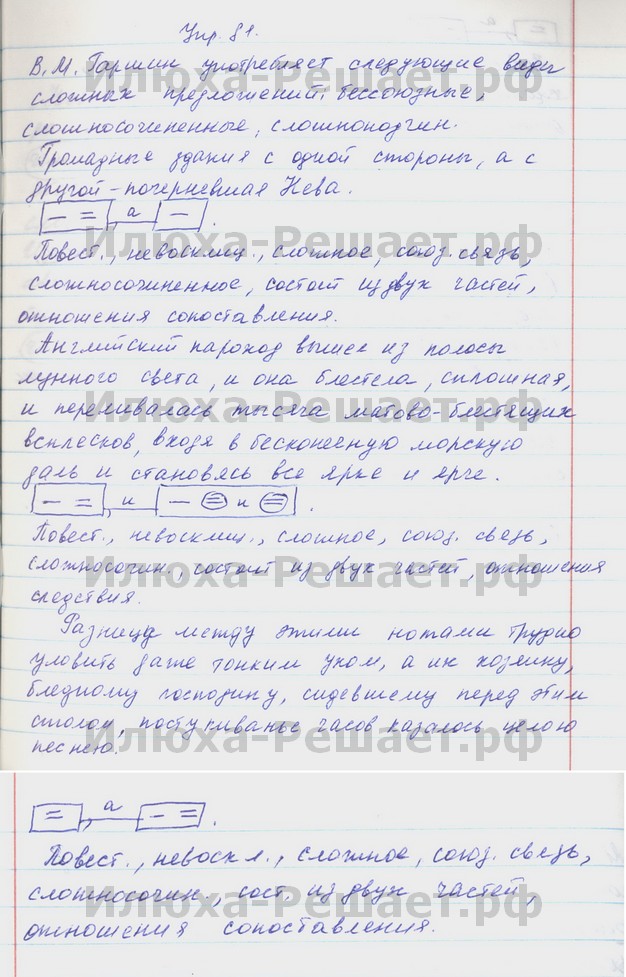 Упр. 81.
В. М. Гаршин употребляет следующие виды
сложных предложений: бессоюзные,
сложносочиненные, сложноподчин.
Громадные здания с одной стороны, а с
другой - почерневшая Нева.
[— =], а [—].
Повест., невосклиц., сложное, союз. связь,
сложносочиненное, состоит из двух частей,
отношения сопоставления.
Английский пароход вышел из полосы
лунного света, и она блестела, сплошная,
и переливалась тысяча матово-блестящих
всплесков, входя в бесконечную морскую
даль и становясь все ярке и ярче.
[— =], и [— = и =].
Повест., невосклиц., сложное, союз. связь,
сложносочин., состоит из двух частей, отношения
следствия.
Разницу между этими нотами трудно
уловить даже тонким ухом, а их хозяину,
бледному господину, сидевшему перед этим
столом, постукиванье часов казалось целою
песнею.
[=], а [— =].
Повест., невоскл., сложное, союз. связь,
сложносочин., сост. из двух частей,
отношения сопоставления.
Илюха-Решает.рф
Илюха-Решает.рф
Илюха-Решает.рф
Илюха-Решает.рф
Илюха-Решает.рф
Илюха-Решает.рф